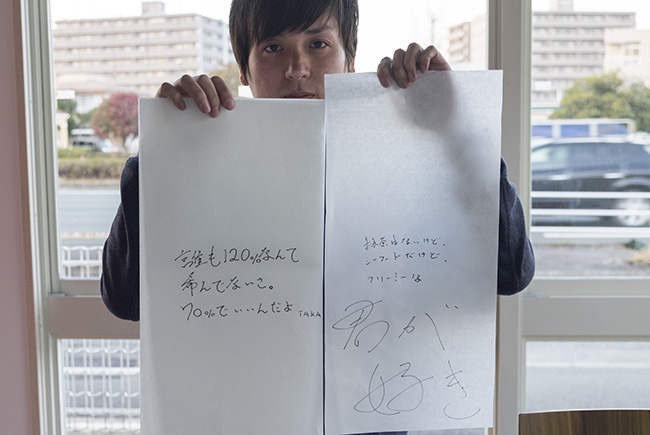 誰も120%なんて
希んでないさ。
70%でいいんだよ TAKA
抹茶はないけど、
シーフードだけど、
クリーミーな
君が
好き